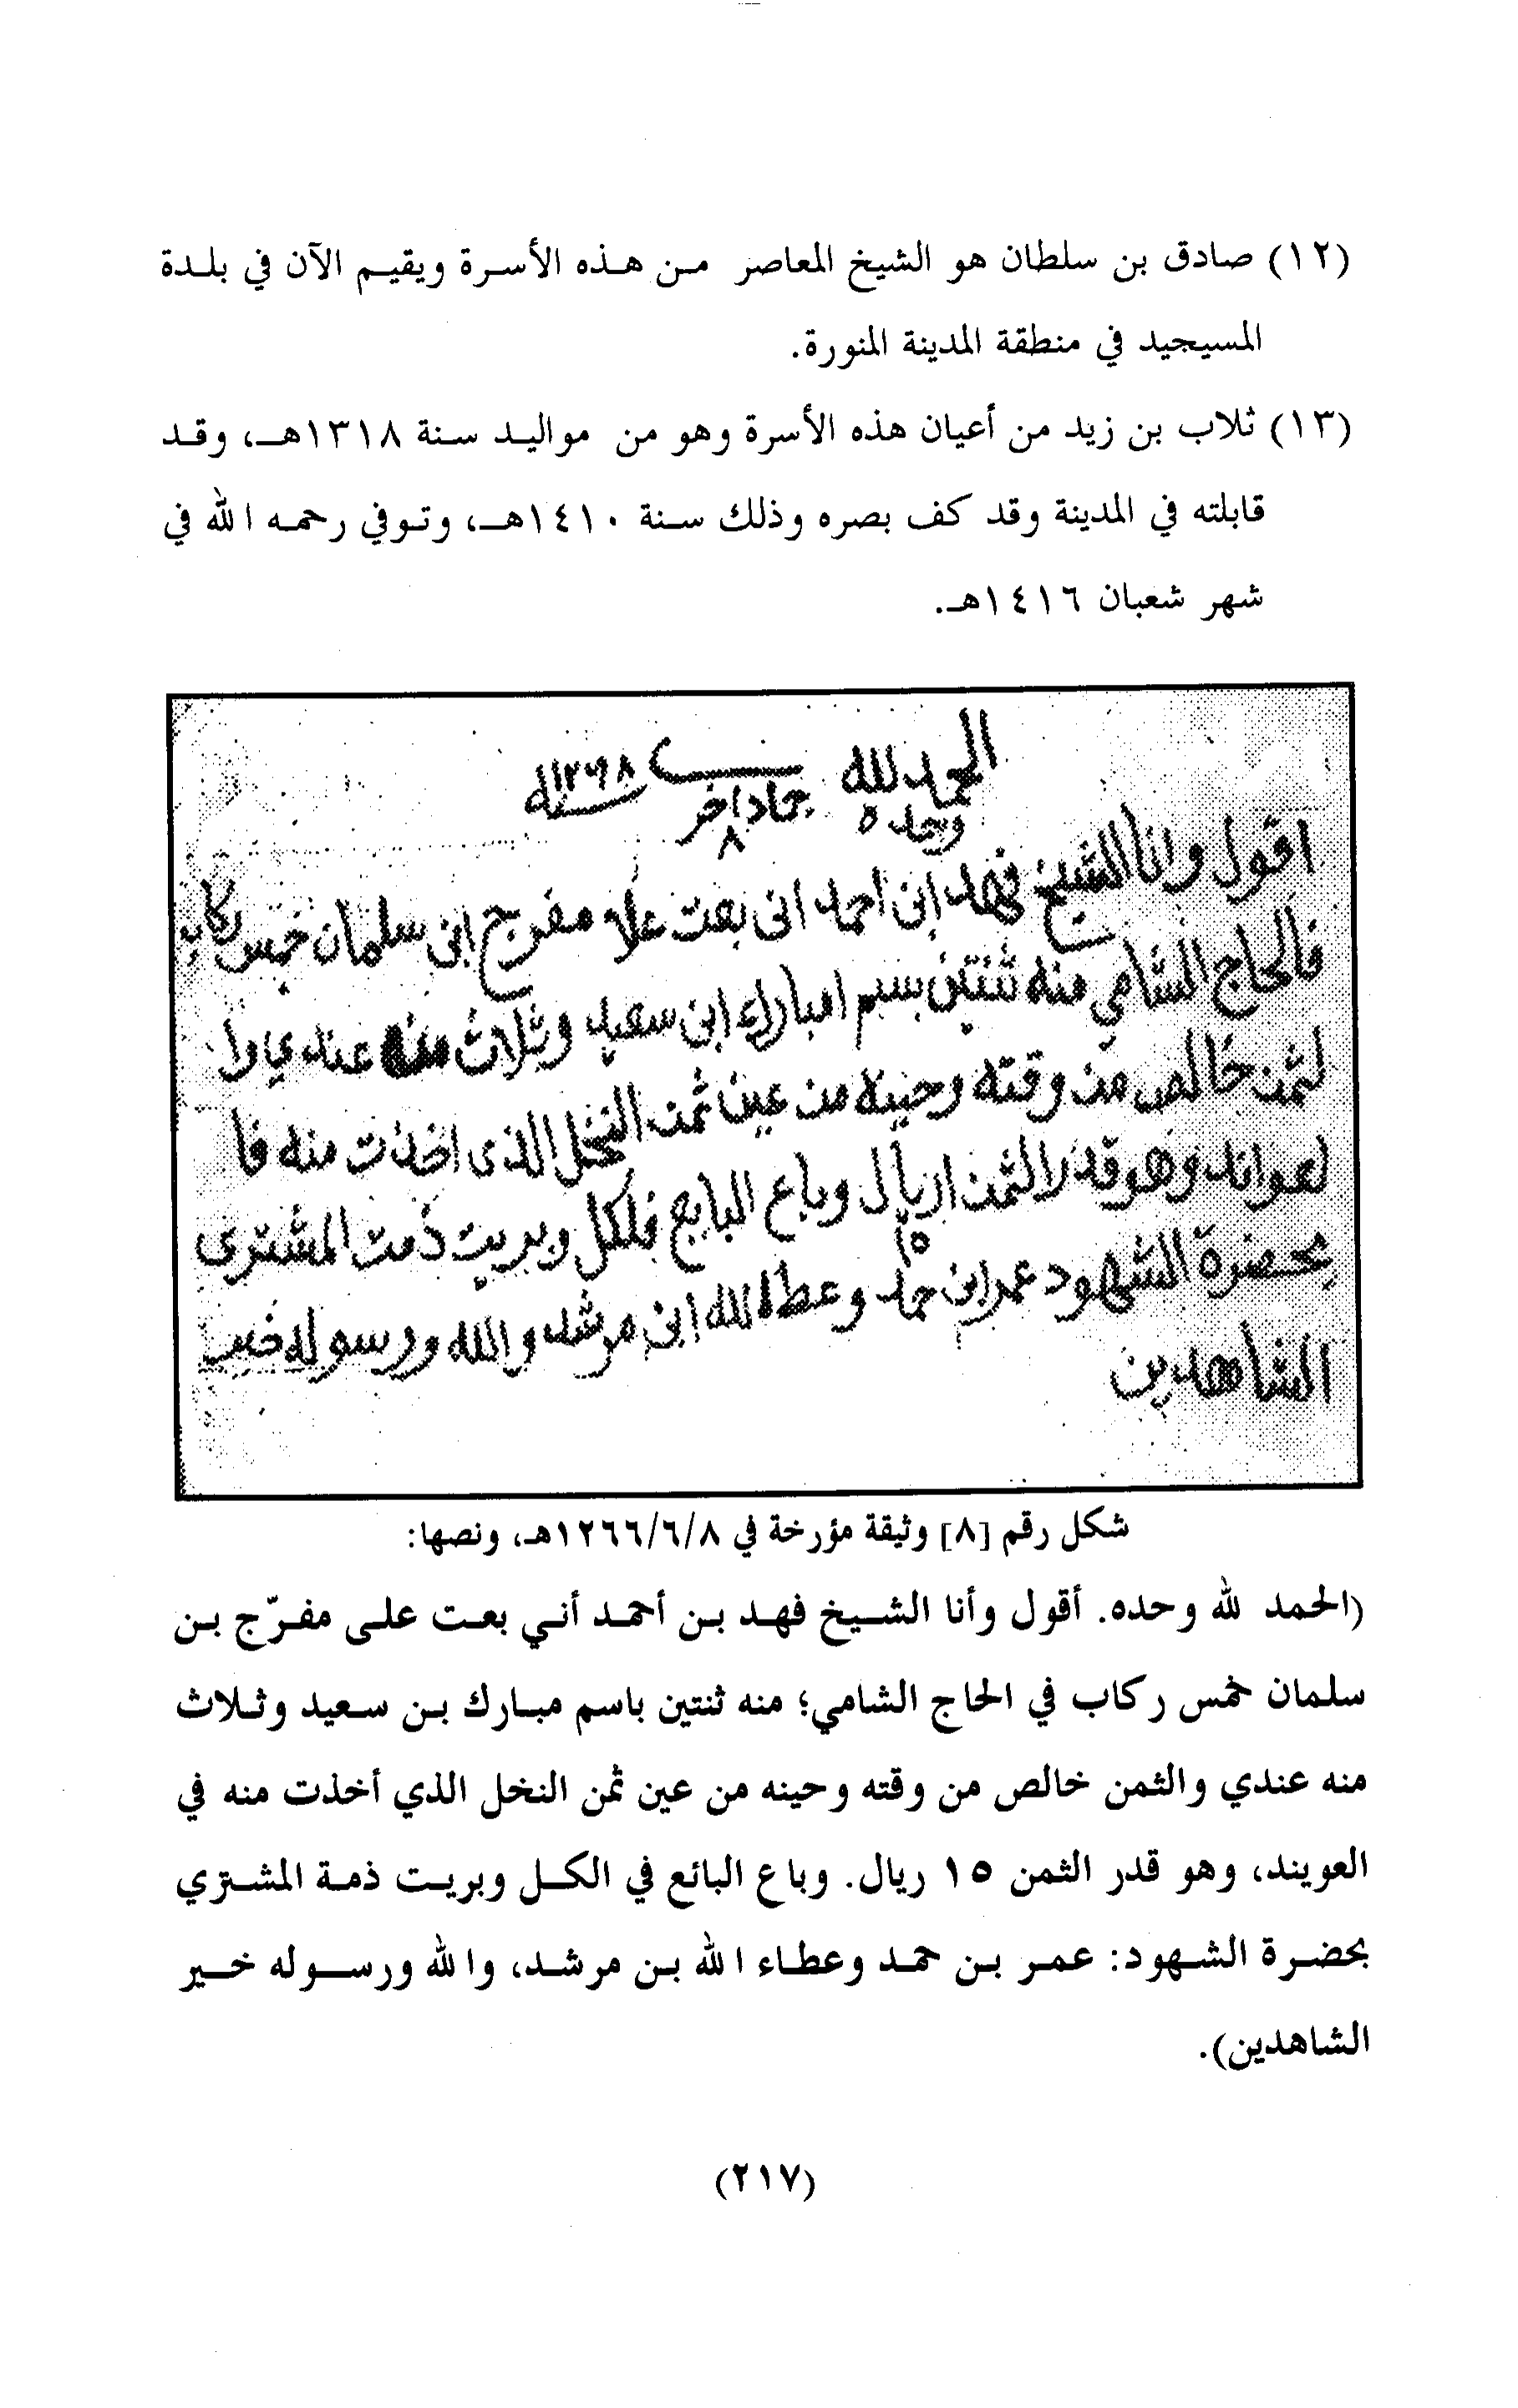 (١٢) صادق بن سلطان هو الشيخ المعاصر من هذه الأسرة ويقيم الآن في بلدة
المسيجيد في منطقة المدينة المنورة.
(١٣) ثلاب بن زيد من أعيان هذه الأسرة وهو من مواليد سنة ١٣١٨هـ، وقد
قابلته في المدينة وقد كف بصره وذلك سنة ١٤١٠هـ، وتوفي رحمه الله في
شهر شعبان ١٤١٦هـ.
الحمد لله
وحده
جماد اخر
٨
اقول وانا الشيخ فهد ابن احمد انى بعت علا مفرج ابن سلمان خمس ركاب
فالحاج الشامي منه ثنتين بسم امبارك ابن سعيد وثلاث منه عندي وا
لثمن خالص من وقته وحينه من عين ثمن النخل الذى اخذت منه فا
لعواند وهو قدر الثمن اريال وباع البايع فلكل وبريت ذمت المشترى
١٥
بحضرة الشهود عمر ابن حمد وعطاء الله ابن مرشد والله ورسوله خير
الشاهدين
شكل رقم [٨] وثيقة مؤرخة في ١٢٦٦/٦/٨هـ، ونصها:
(الحمد لله وحده. أقول وأنا الشيخ فهد بن أحمد أني بعت على مفرّج بن
سلمان خمس ركاب في الحاج الشامي؛ منه ثنتين باسم مبارك بن سعيد وثلاث
منه عندي والثمن خالص من وقته وحينه من عين ثمن النخل الذي أخذت منه في
العويند، وهو قدر الثمن ١٥ ريال. وباع البائع في الكل وبريت ذمة المشتري
بحضرة الشهود: عمر بن حمد وعطاء الله بن مرشد، والله ورسوله خير
الشاهدين).
(٢١٧)